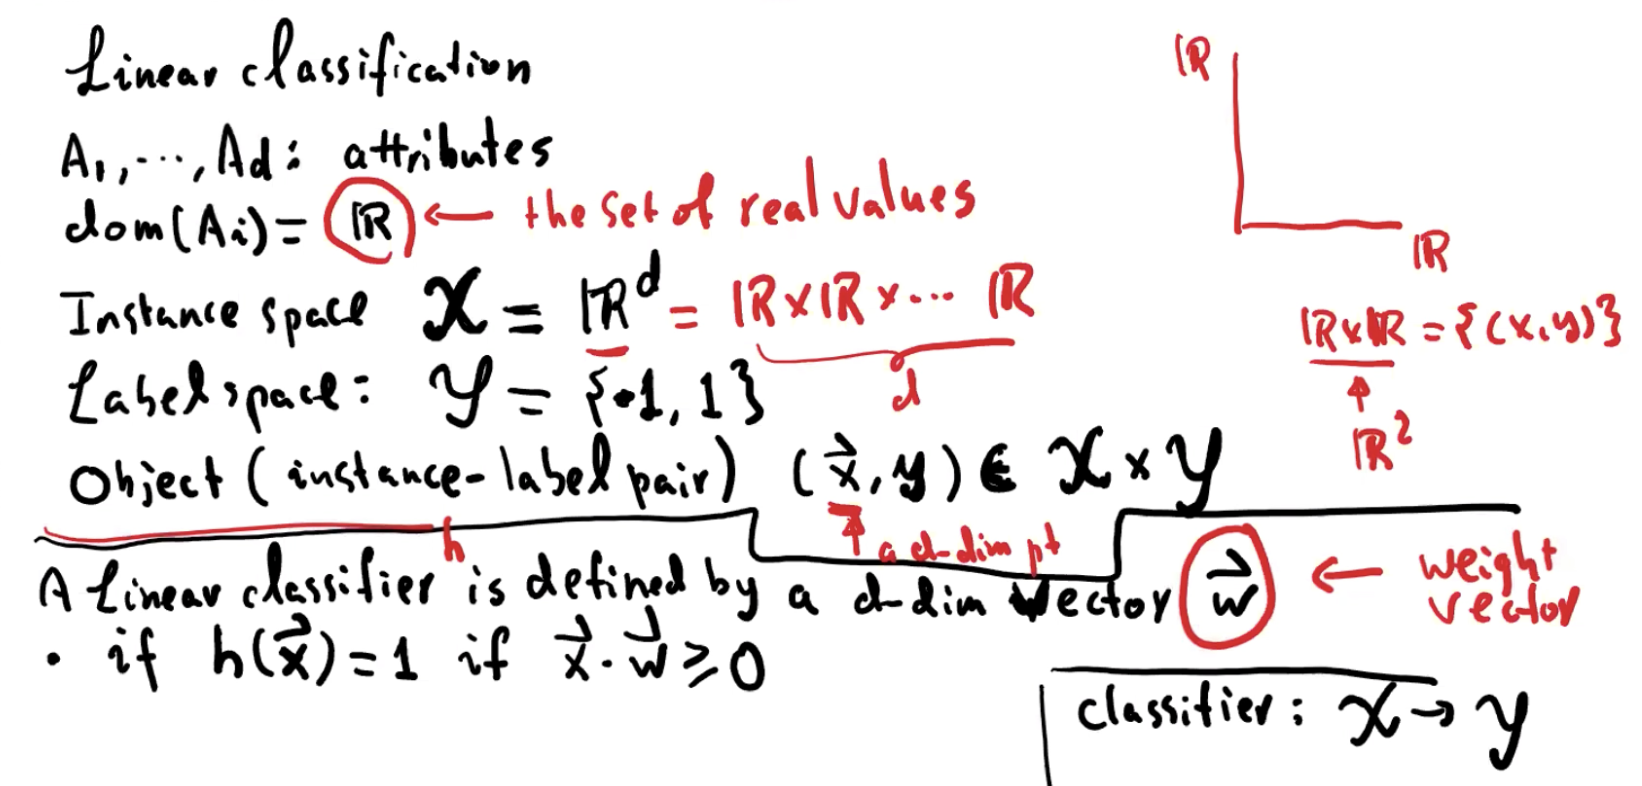 Linear classification
A₁, ..., Ad: attributes
dom(Ai) = ℝ ← the set of real values
Instance space 𝒳 = ℝ^d = ℝ×ℝ×... ℝ
d
Label space: 𝒴 = {-1, 1}
Object (instance-label pair) (x⃗, y) ∈ 𝒳 × 𝒴
↑ a d-dim pt
ℝ
ℝ
ℝ×ℝ = {(x,y)}
↑
ℝ²
h
A linear classifier is defined by a d-dim vector w⃗ ← weight vector
• if h(x⃗) = 1 if x⃗ · w⃗ ≥ 0
classifier: 𝒳 → 𝒴